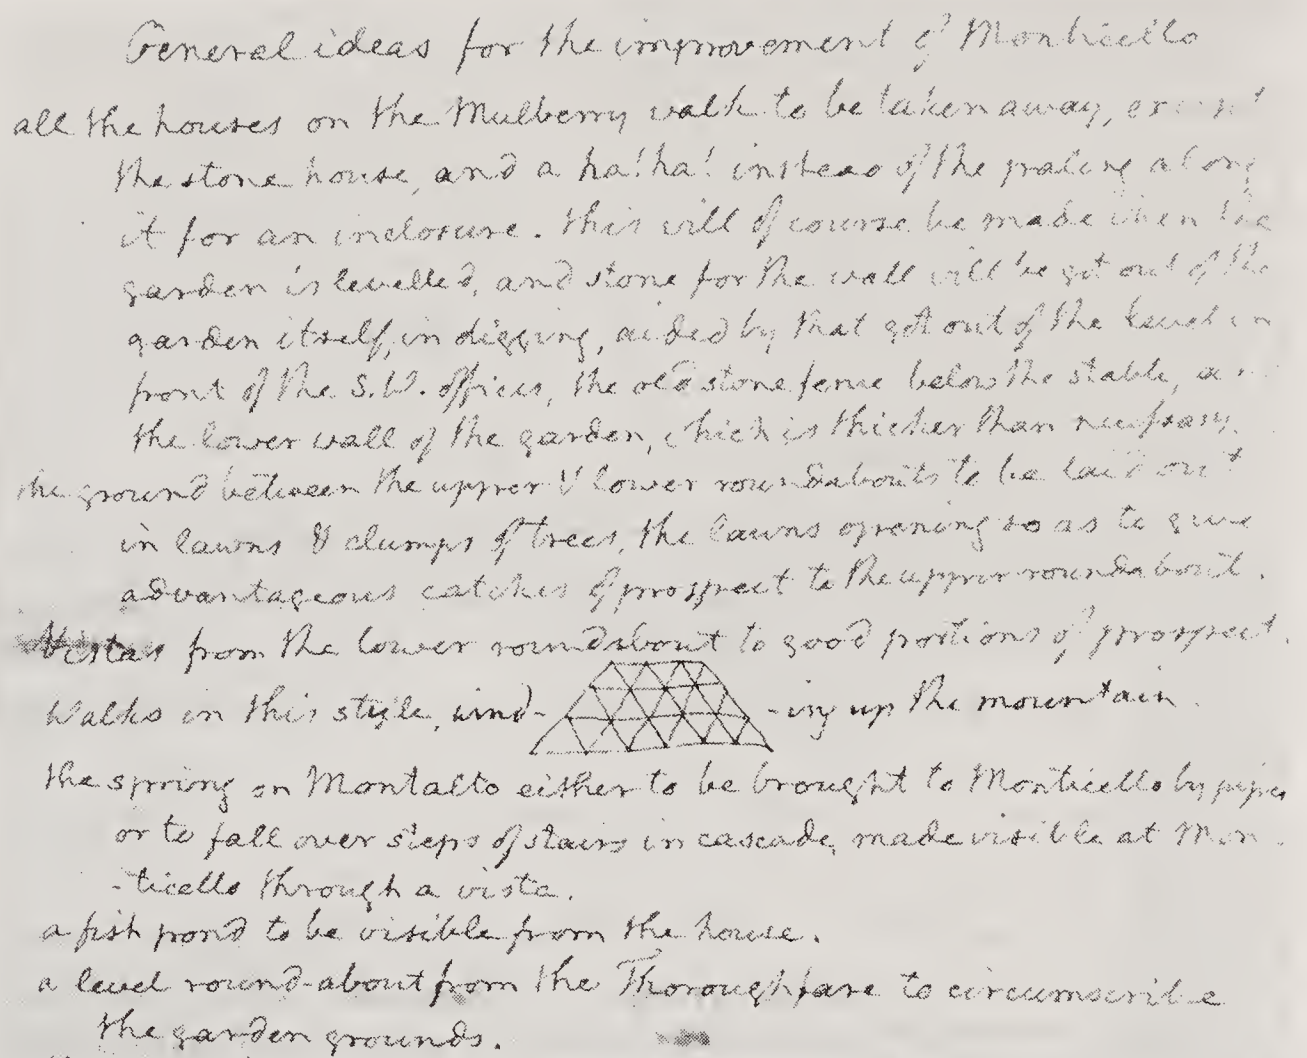 General ideas for the improvement of Monticello
all the houses on the Mulberry walk to be taken away, except
the stone house, and a ha! ha! instead of the paling along
it for an inclosure. this will of course be made when the
garden is levelled, and stone for the wall will be got out of the
garden itself, in digging, aided by that got out of the level in
front of the S.W. offices, the old stone fence below the stable, an
the lower wall of the garden, which is thicker than necessary.
the ground between the upper & lower roundabouts to be laid out
in lawns & clumps of trees, the lawns opening so as to give
advantageous catches of prospect to the upper roundabout.
Vistas from the lower roundabout to good portions of prospect.
Walks in this style, wind- -ing up the mountain.
the spring on Montalto either to be brought to Monticello by pipes
or to fall over steps of stairs in cascade, made visible at Mon
-ticello through a vista.
a fish pond to be visible from the house.
a level round-about from the Thoroughfare to circumscribe
the garden grounds.